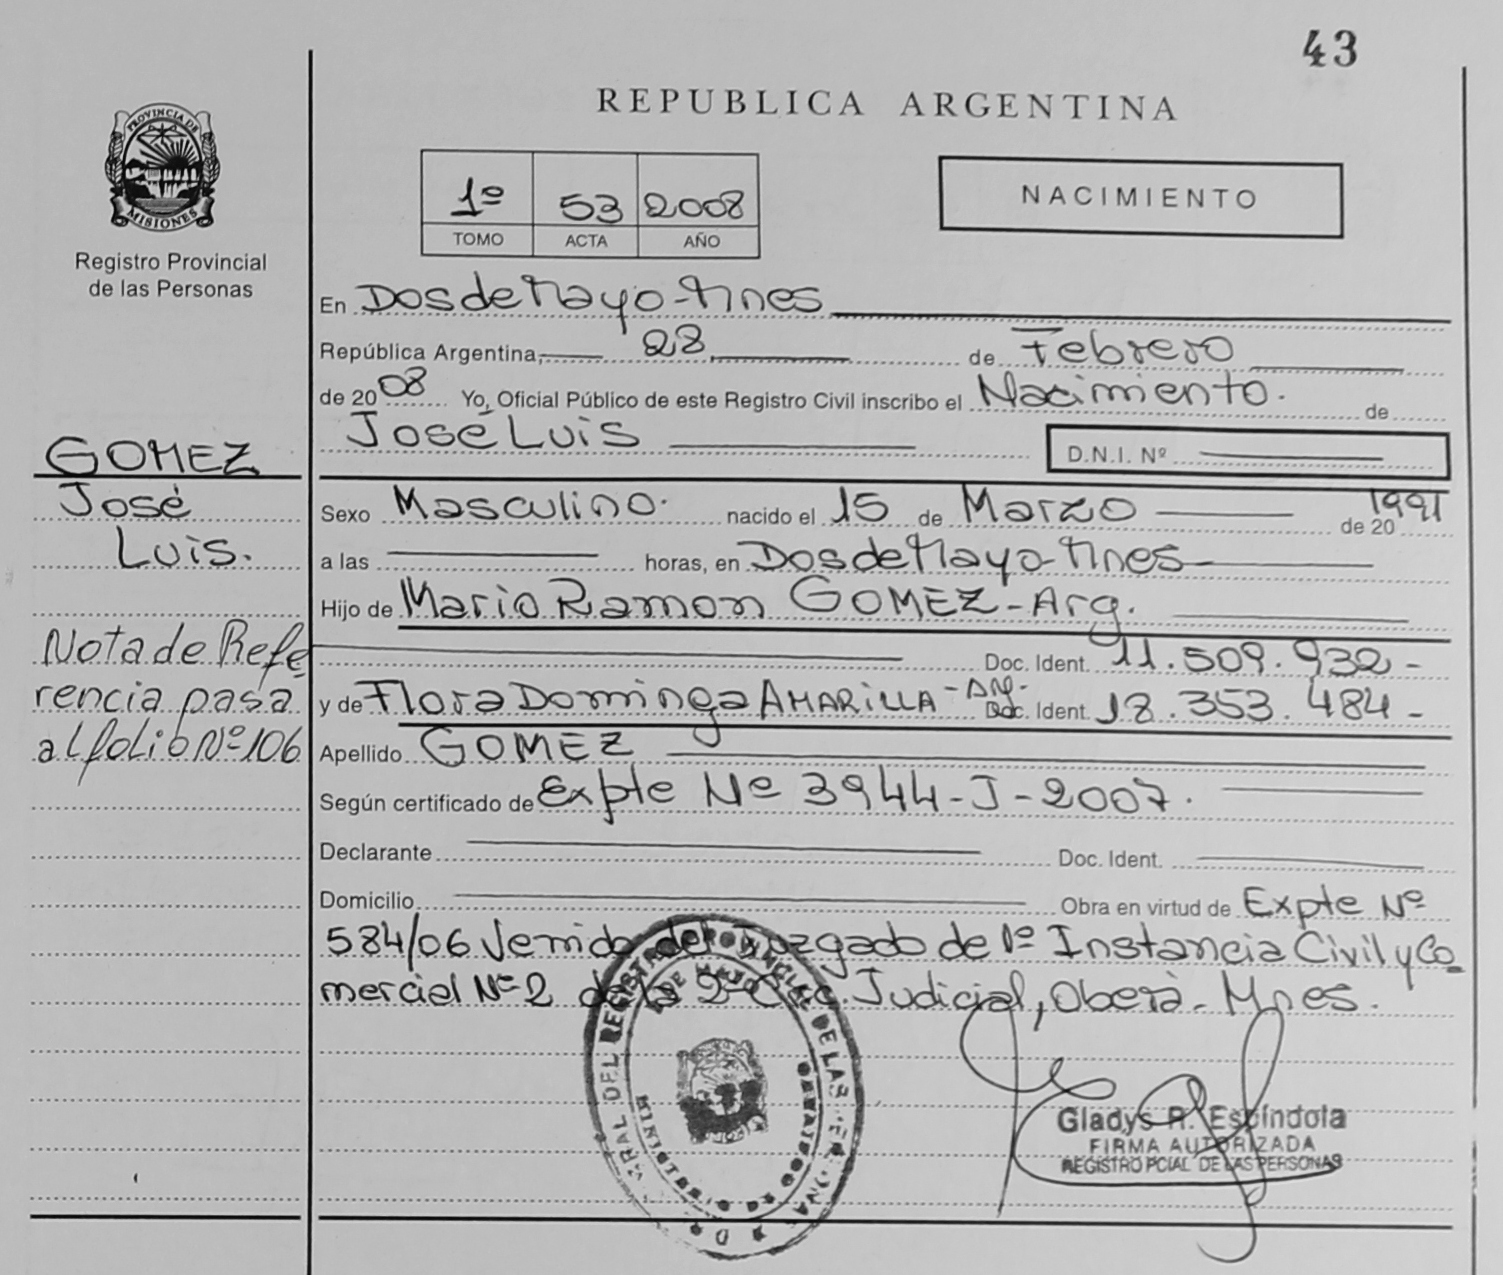 43
REPUBLICA ARGENTINA
PROVINCIA DE
MISIONES
Registro Provincial
de las Personas
1º 53 2008
TOMO ACTA AÑO
NACIMIENTO
En Dos de Mayo-Mnes
República Argentina, 28 de Febrero
de 2008 Yo, Oficial Público de este Registro Civil inscribo el Nacimiento. de
José Luis D.N.I. Nº
GOMEZ
José
Luis.
Sexo Masculino. nacido el 15 de Marzo de 20 1991
a las horas, en Dos de Mayo-Mnes
Hijo de Mario Ramon GOMEZ-Arg.
Doc. Ident. 11.509.932-
y de Flora Dominga AMARILLA-Arg.- Doc. Ident. 18.353.484-
Nota de Refe
rencia pasa
al folio Nº 106
Apellido GOMEZ
Según certificado de Expte Nº 3944-J-2007.
Declarante Doc. Ident.
Domicilio Obra en virtud de Expte Nº
584/06 Venido del Juzgado de 1º Instancia Civil y Co
mercial Nº 2 de la 2º Judicial, Oberà-Mnes.
Gladys R. Espíndola
FIRMA AUTORIZADA
REGISTRO PCIAL DE LAS PERSONAS
DEL REGISTRO PROVINCIAL DE LAS PERSONAS
DOS DE MAYO